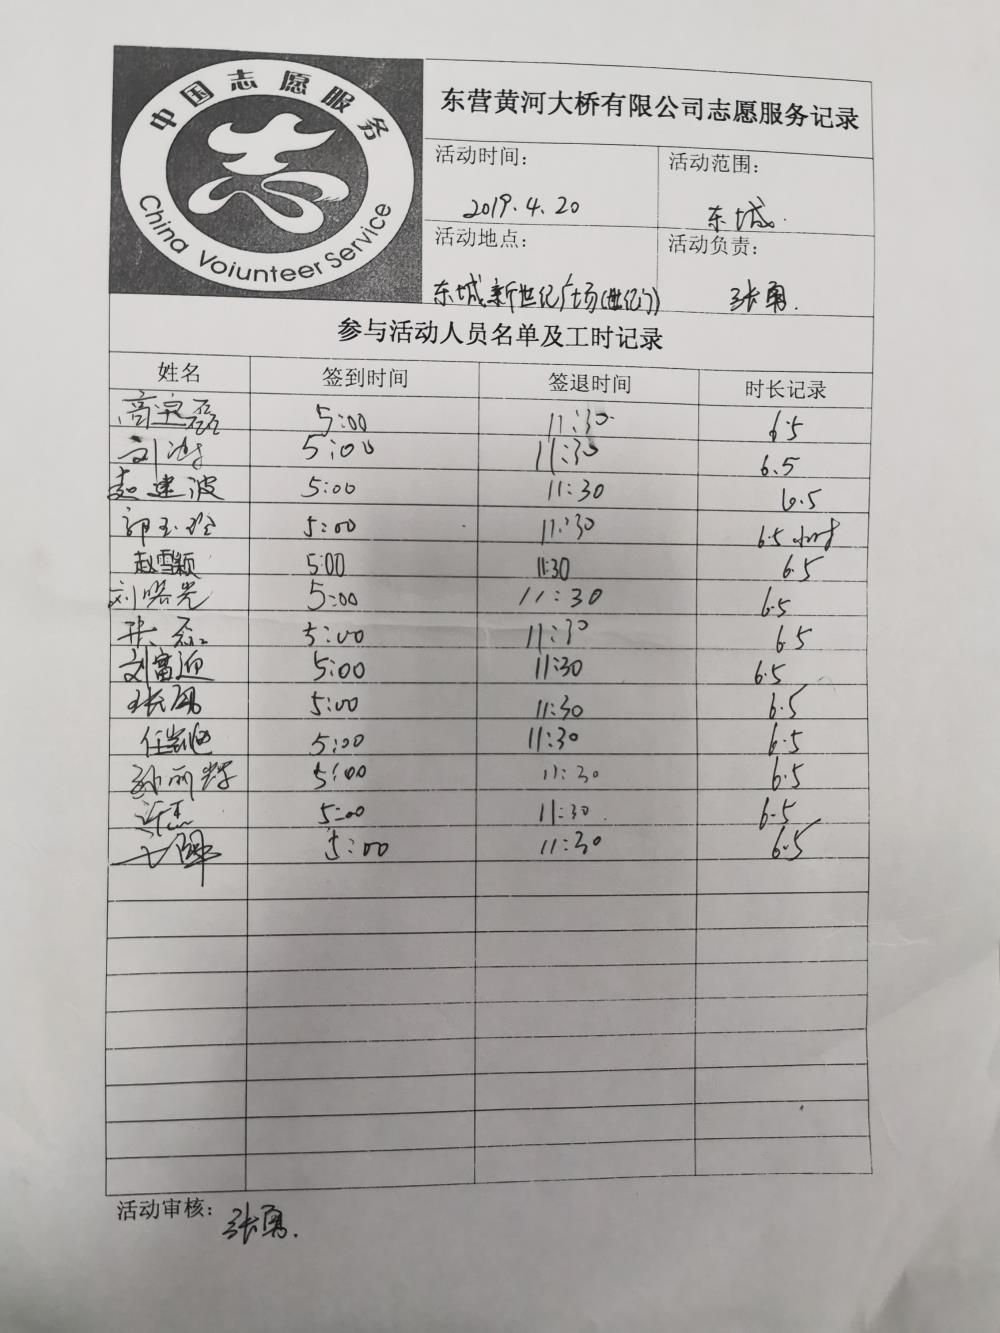 中国志愿服务
China Voiunteer Service
东营黄河大桥有限公司志愿服务记录
活动时间: 活动范围:
2019.4.20 东城.
活动地点: 活动负责:
东城新世纪广场(世纪门) 张勇.
参与活动人员名单及工时记录
姓名 签到时间 签退时间 时长记录
高宝磊 5:00 11:30 6.5
刘涛 5:00 11:30 6.5
赵建波 5:00 11:30 6.5
郭玉玲 5:00 11:30 6.5小时
赵雪颖 5:00 11:30 6.5
刘曙光 5:00 11:30 6.5
张磊 5:00 11:30 6.5
刘富迎 5:00 11:30 6.5
张勇 5:00 11:30 6.5
任 5:00 11:30 6.5
孙丽辉 5:00 11:30 6.5
许杰 5:00 11:30 6.5
5:00 11:30 6.5
活动审核: 张勇.